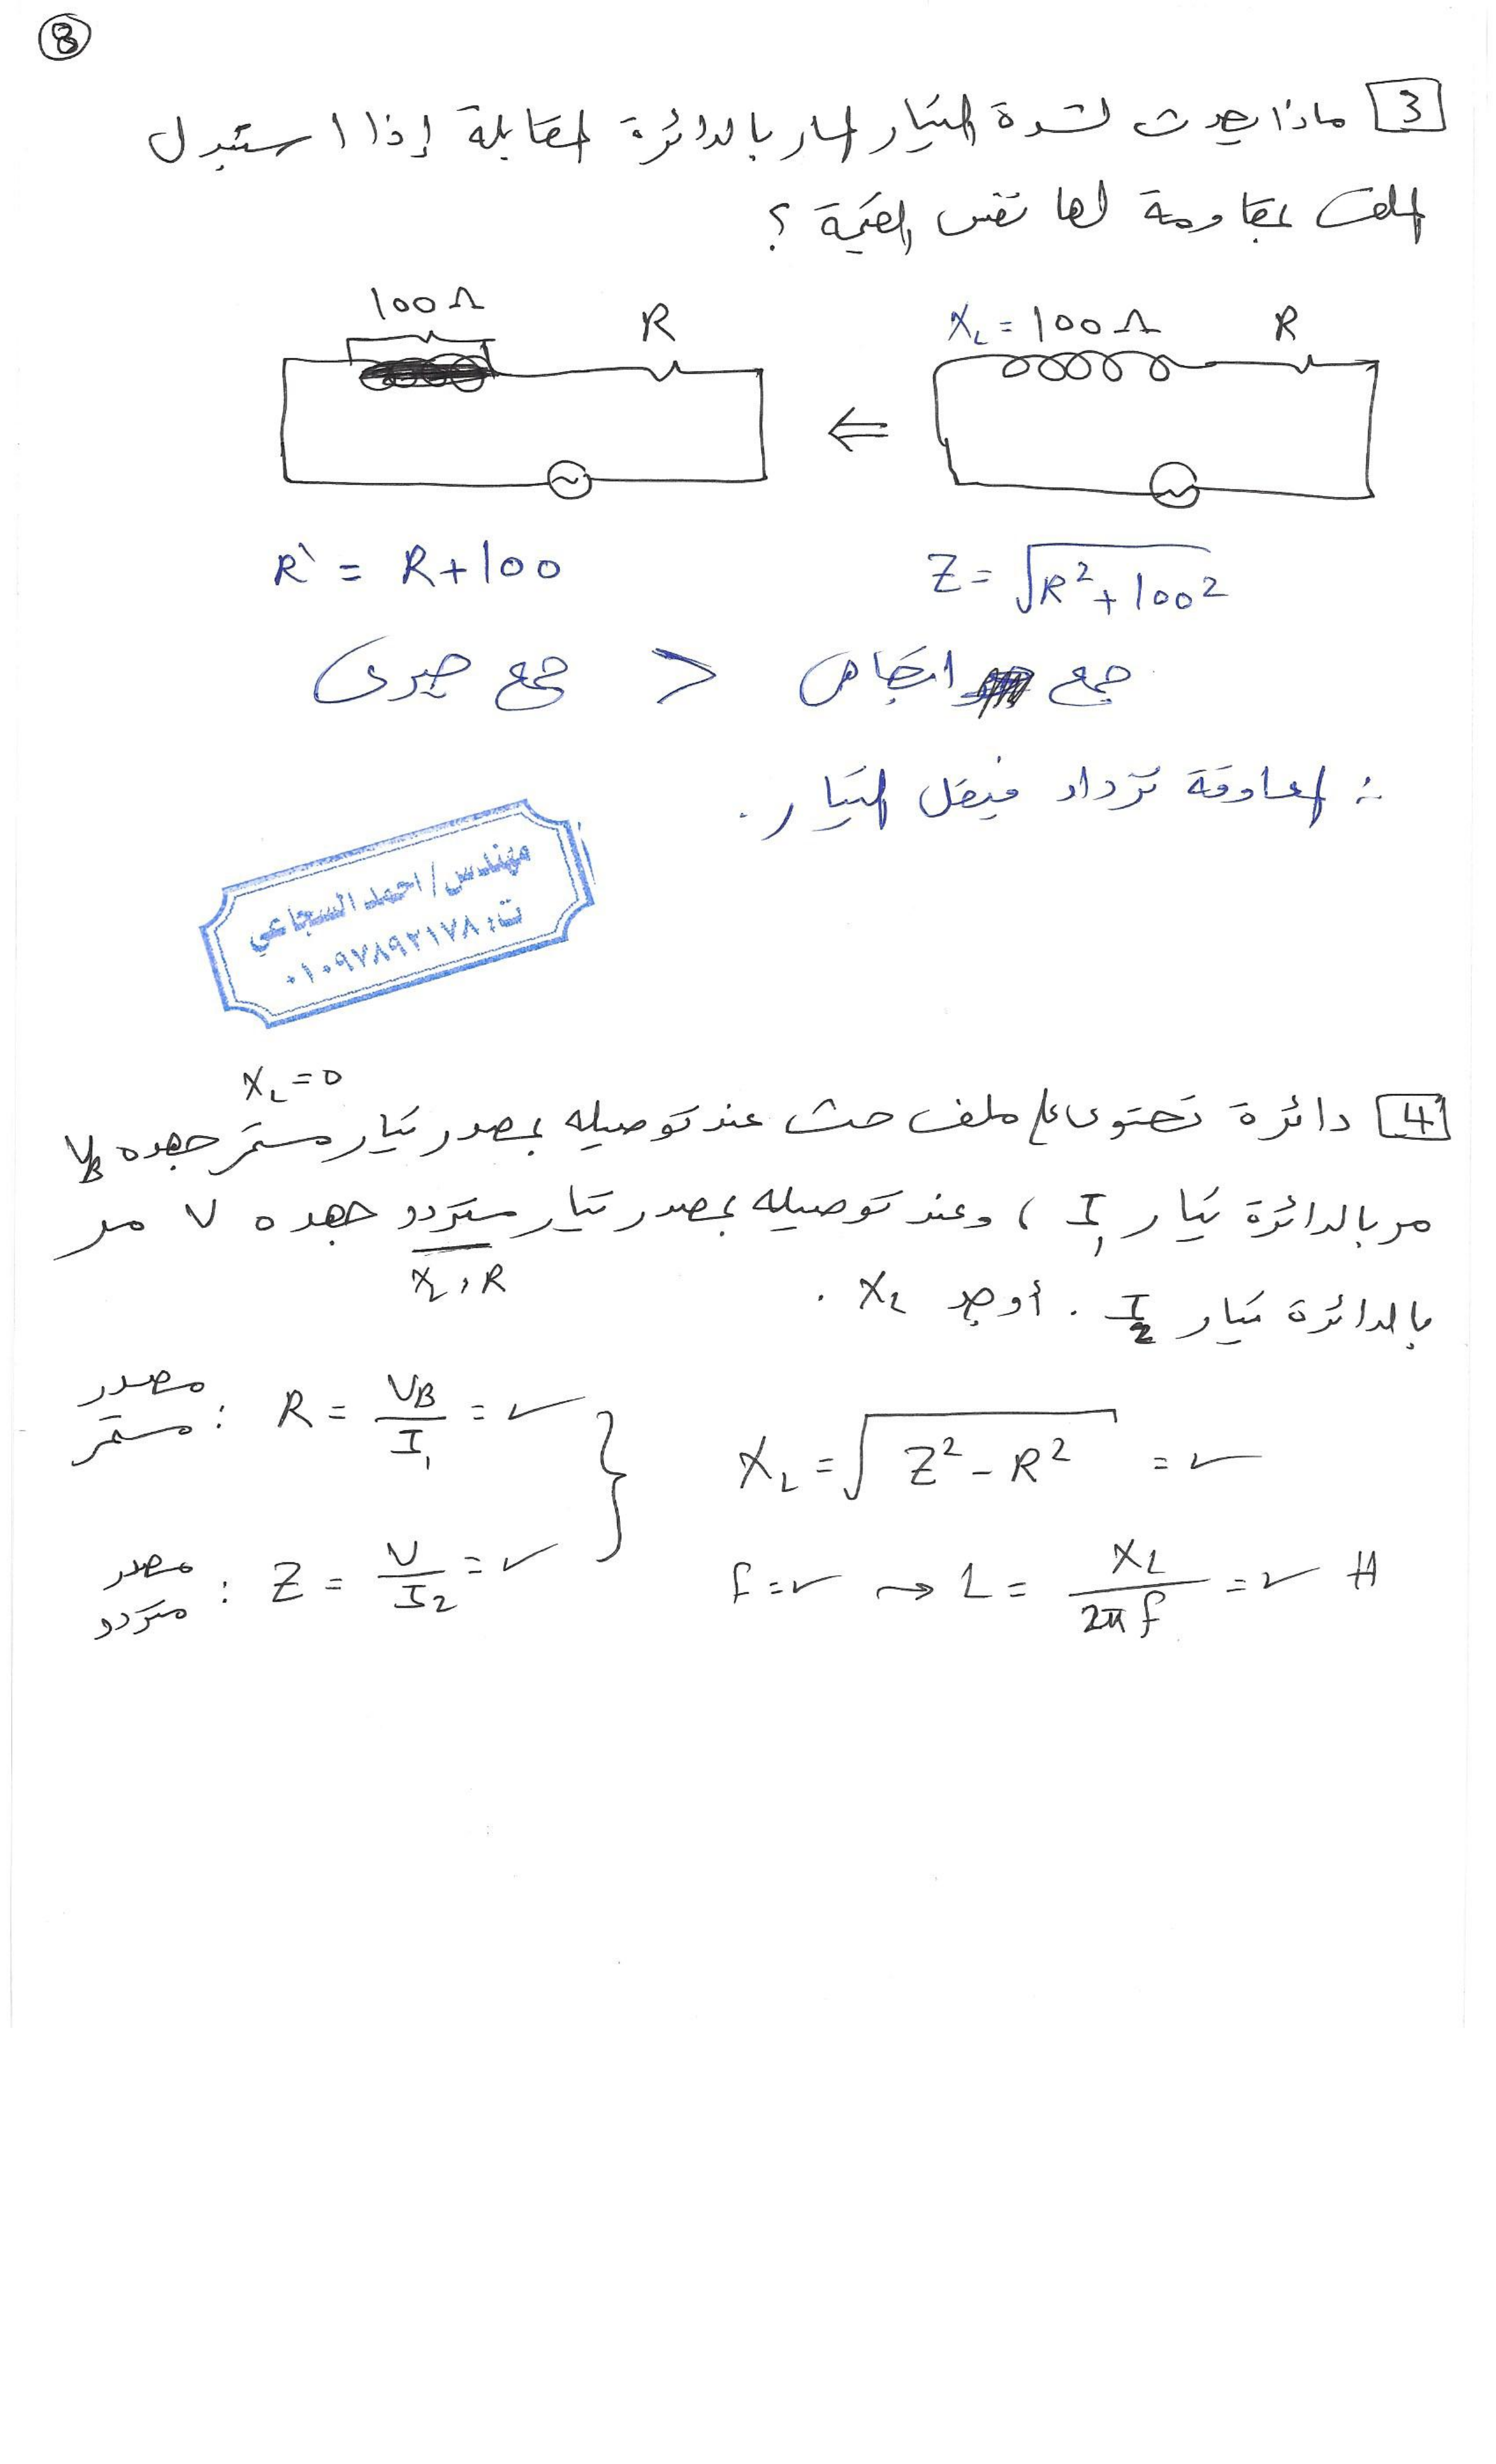 8
3 ماذا يحدث لشدة التيار المار بالدائرة المقابلة إذا استبدل
الملف بمقاومة لها نفس القيمة ؟
X_L = 100 Ω R
100 Ω R
Z = √(R² + 100²)
R` = R + 100
جمع اتجاهى < جمع جبرى
∴ المعاوقة تزداد فيقل التيار .
مهندس / احمد السجاعي
ت : ٠١٠٩٧٨٩٢١٧٨
X_L = 0
4 دائرة تحتوى على ملف حث عند توصيله بمصدر تيار مستمر جهده V_B
مر بالدائرة تيار I₁ ، وعند توصيله بمصدر تيار متردد جهده V مر
X_L , R
بالدائرة تيار I₂ . أوجد X_L .
مصدر مستمر : R = V_B / I₁ = ✓
X_L = √(Z² - R²) = ✓
مصدر متردد : Z = V / I₂ = ✓
f = ✓ → L = X_L / 2πf = ✓ H